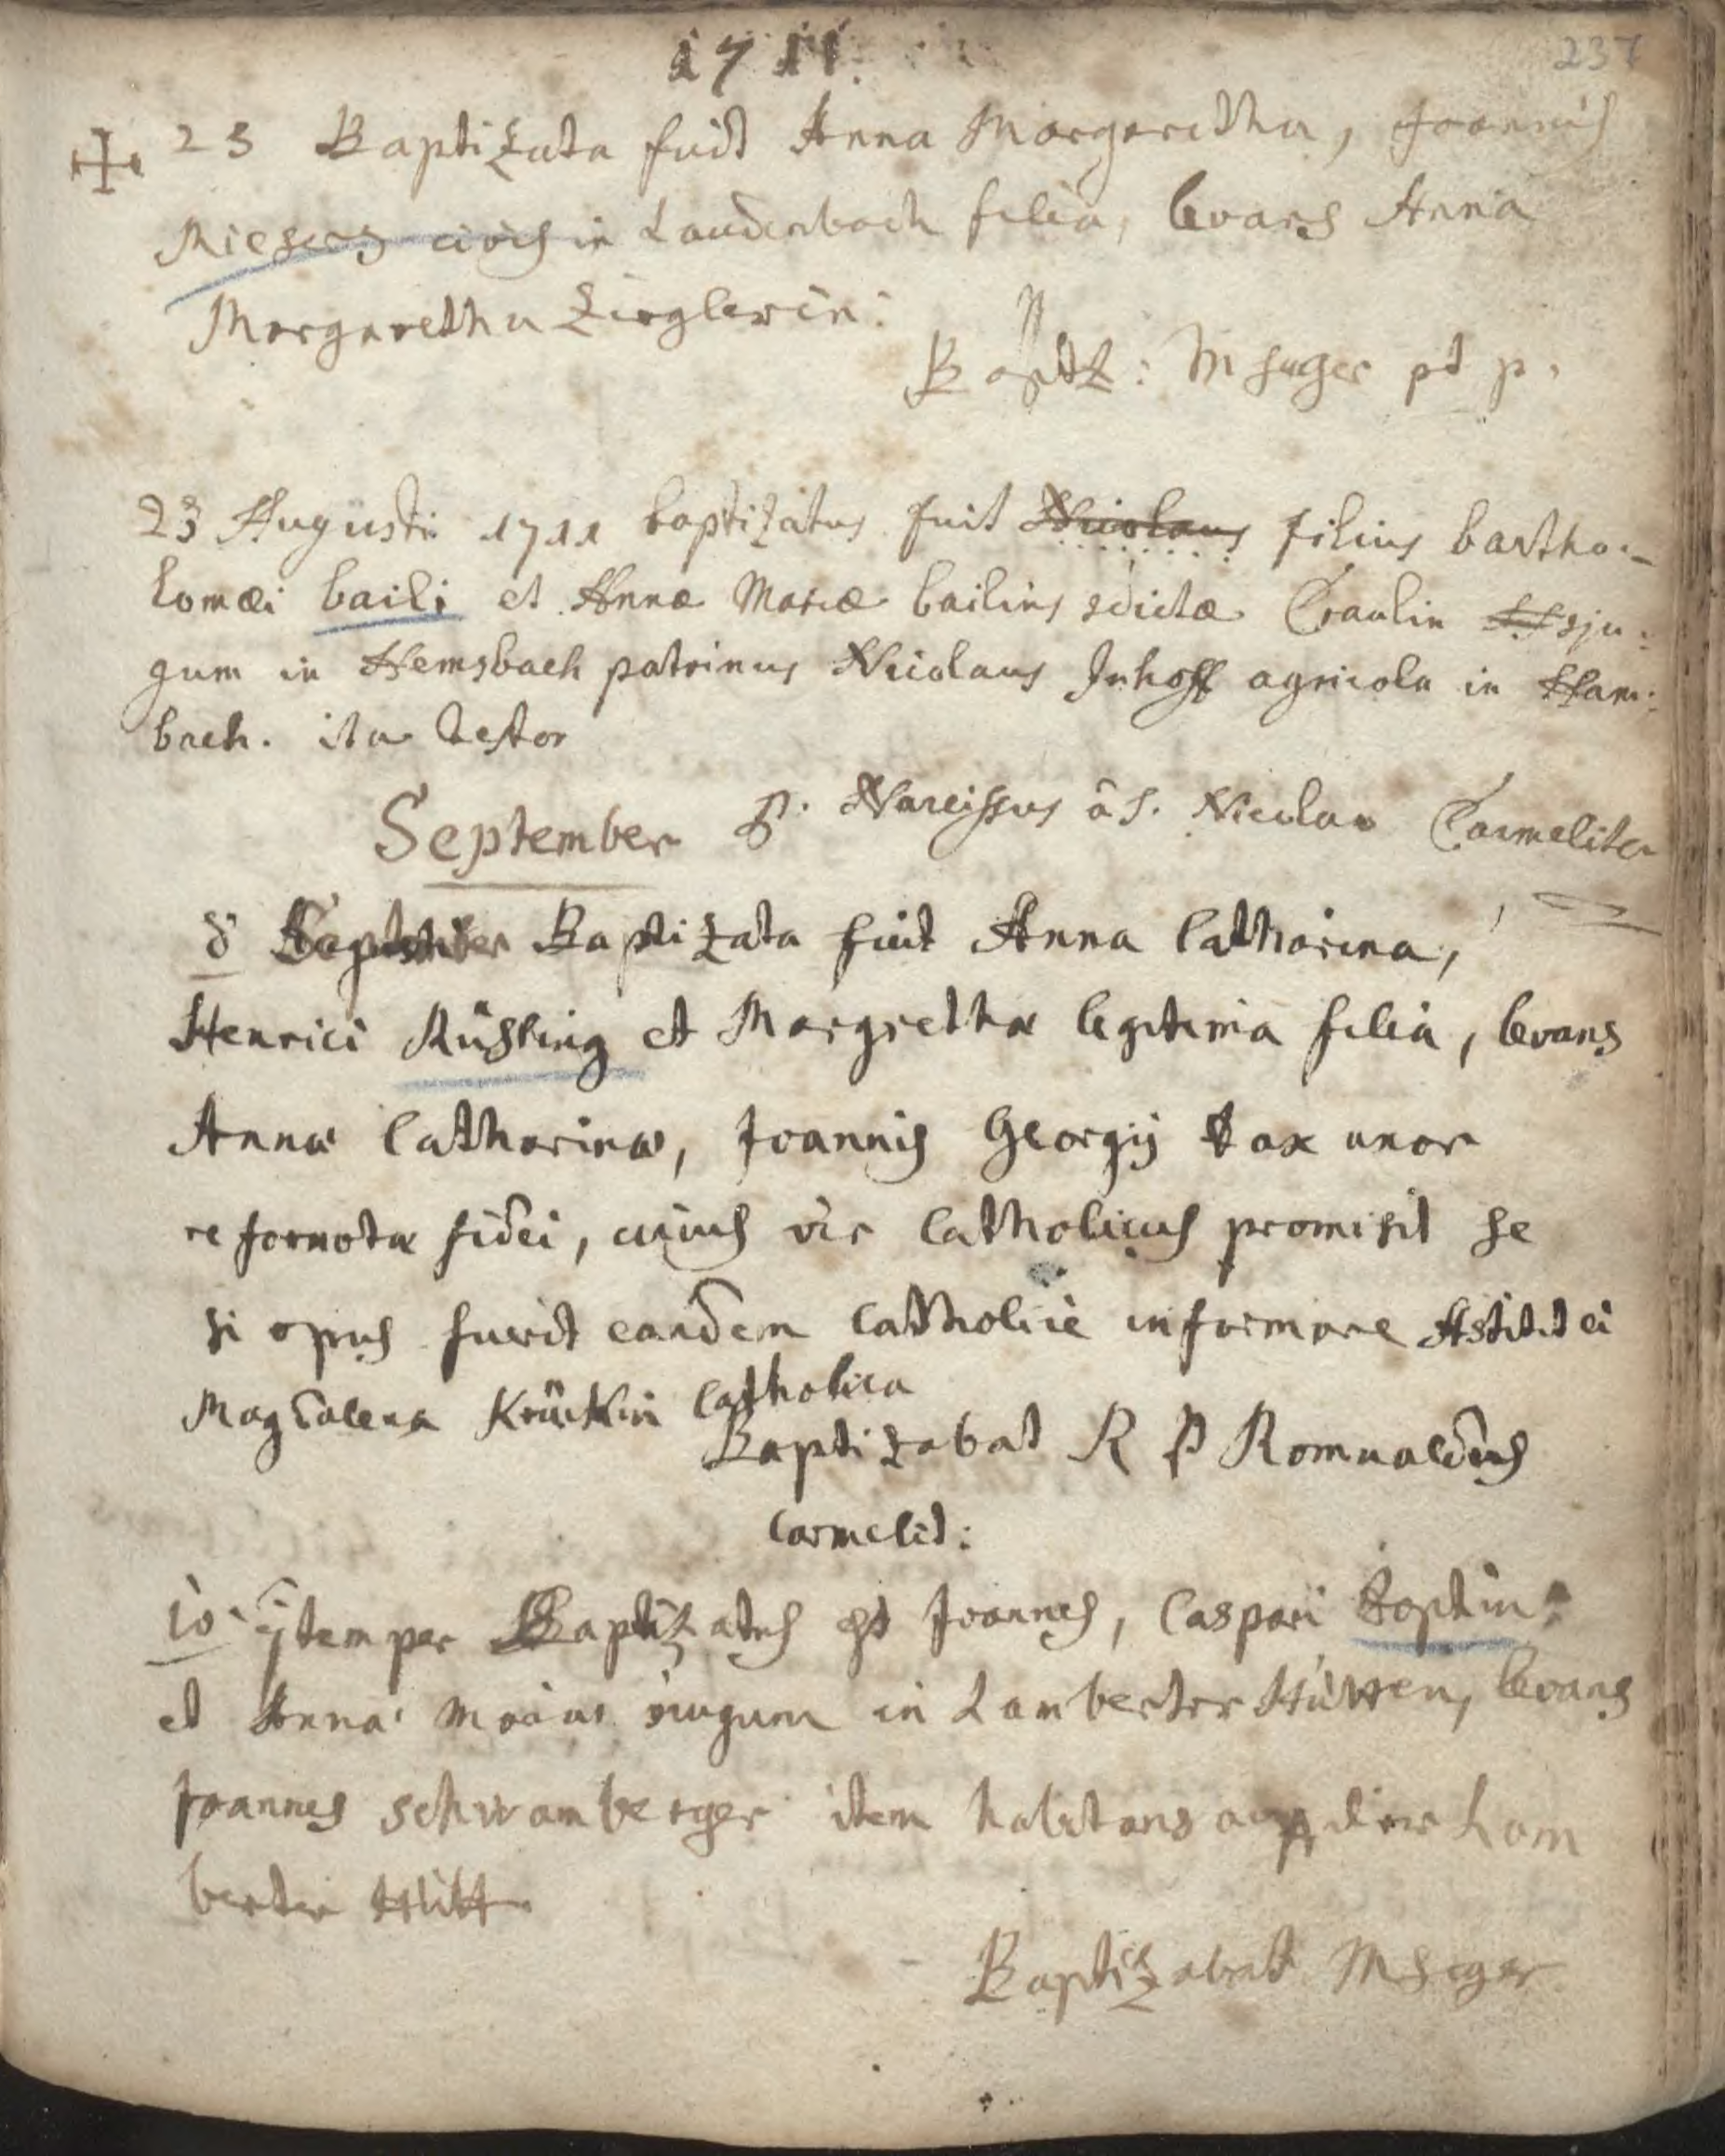 1711.
237
23 Baptizata fuit Anna Margaretha, Joannis
civis in Laudenbach filia, levans Anna
Margaretha Zieglerin:
Baptz: M Seger pt p.
23 Augusti 1711 baptizatus fuit Nicolaus filius bartho-
lomæi baili et Annæ Mariæ bailins Craulin sju:
gum in Hemsbach patrinus Nicolaus Inhoff agricola in Ham:
bach. ita testor
P. Narcissus â S. Nicolao Carmelita
September
8 September Baptizata fuit Anna Catharina,
Henrici Rüsling et Margretha legitima filia, levans
Anna Catharina, Joannis Georgij uxor
reformata fidei, cuius vir Catholicus promisit se
si opus fuerit eandem Catholicè informare Astitit ei
Magdalena Kräckin Catholica
Baptizabat R P Romualdus
Carmelit:
10 jtem per Baptizatus est Joannes, Caspari
et Anna Maria iugum in Lamberter Hütten, levans
Joannes Schwamberger item habitans auff der Lam
berter Hütt
Baptizabat M Seger